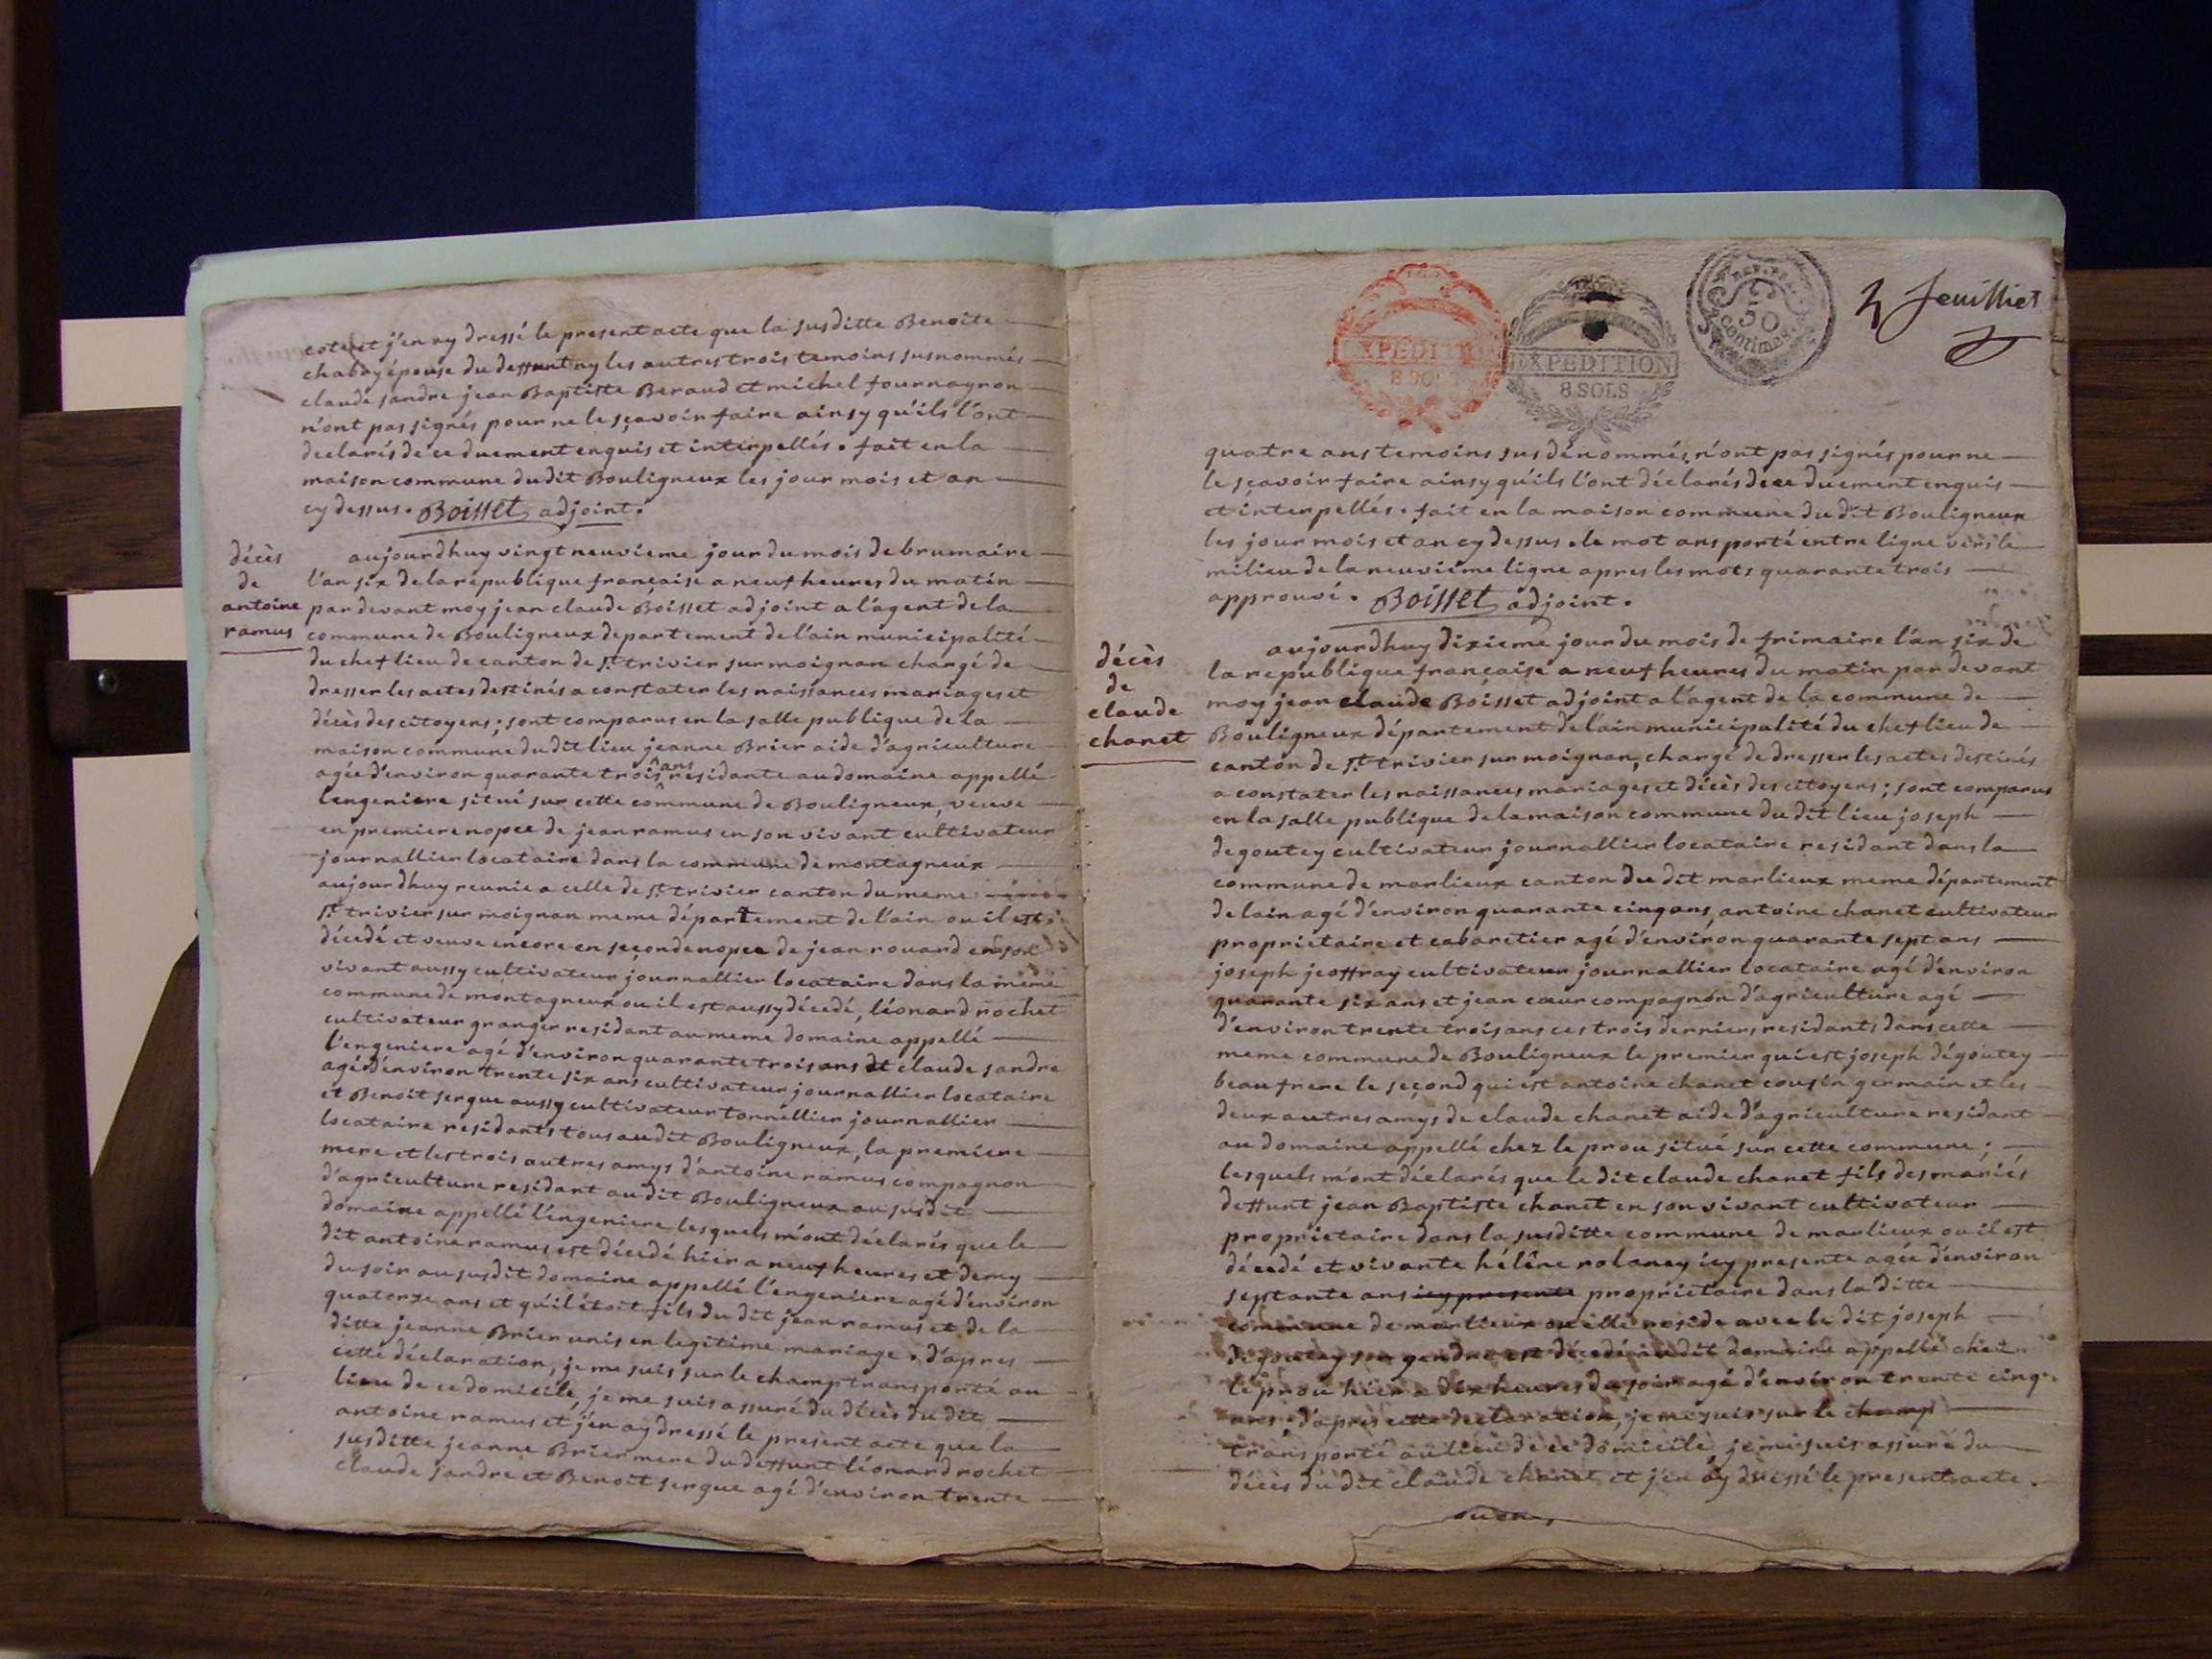 cote et j'en ay dressé le present acte que la susditte Benoite
chabry épouse du deffunt ny les autres trois temoins susnommés
claude sandre jean Baptiste Beraud et michel fournayron
n'ont pas signés pour ne le sçavoir faire ainsy qu'ils l'ont
declarés de ce duement enquis et interpellés. fait en la
maison commune du dit Bouligneux les jour mois et an
cy dessus. Boisset adjoint.
décès
de
antoine
ramus
aujourdhuy vingt neuvieme jour du mois de brumaire
l'an six de la republique française a neuf heures du matin
par devant moy jean claude Boisset adjoint a l'agent de la
commune de Bouligneux departement de l'ain municipalité
du chef lieu de canton de St. trivier sur moignan chargé de
dresser les actes destinés a constater les naissances mariages et
décès des citoyens; sont comparus en la salle publique de la
maison commune du dit lieu jeanne Brier aide d'agriculture
agée d'environ quarante trois ans residante au domaine appellé
l'engeniere situé sur cette commune de Bouligneux, veuve
en premiere nopce de jean ramus en son vivant cultivateur
journallier locataire dans la commune de montagneux
aujourdhuy reunie a celle de St. trivier canton du meme
St. trivier sur moignan meme département de l'ain ou il est
décedé et veuve encore en seconde nopce de jean rouard en son
vivant aussy cultivateur journallier locataire dans la meme
commune de montagneux ou il est aussy décedé, léonard rochet
cultivateur granger residant au meme domaine appellé
l'engeniere agé d'environ quarante trois ans et claude sandre
agé d'environ trente six ans cultivateur journallier locataire
et Benoit sergue aussy cultivateur tonnellier journallier
locataire residants tous au dit Bouligneux, la premiere
mere et les trois autres amys d'antoine ramus compagnon
d'agriculture residant au dit Bouligneux au susdit
domaine appellé l'engeniere lesquels m'ont déclarés que le
dit antoine ramus est décedé hier a neuf heures et demy
du soir au susdit domaine appellé l'engeniere agé d'environ
quatorze ans et qu'il étoit fils du dit jean ramus et de la
ditte jeanne Brier unis en legitime mariage. d'apres
cette déclaration, je me suis sur le champ transporté au
lieu de ce domicile, je me suis assuré du décès du dit
antoine ramus et j'en ay dressé le present acte que la
susditte jeanne Brier mere du deffunt léonard rochet
claude sandre et Benoit sergue agé d'environ trente
EXPEDITION
8 SOLS
EXPEDITION
8 SOLS
REP. FRA.
50
Centimes
2 feuillet
quatre ans temoins sus dénommés n'ont pas signés pour ne
le sçavoir faire ainsy qu'ils l'ont déclarés de ce duement enquis
et interpellés. fait en la maison commune du dit Bouligneux
les jour mois et an cy dessus. le mot ans porté entre ligne vers le
milieu de la neuvieme ligne apres les mots quarante trois
approuvé. Boisset adjoint.
décès
de
claude
chanet
aujourdhuy dixieme jour du mois de frimaire l'an six de
la republique française a neuf heures du matin par devant
moy jean claude Boisset adjoint a l'agent de la commune de
Bouligneux département de l'ain municipalité du chef lieu de
canton de St. trivier sur moignan, chargé de dresser les actes destinés
a constater les naissances mariages et décès des citoyens; sont comparus
en la salle publique de la maison commune du dit lieu joseph
degoutey cultivateur journallier locataire residant dans la
commune de marlieux canton du dit marlieux meme département
de lain agé d'environ quarante cinq ans, antoine chanet cultivateur
propriétaire et cabaretier agé d'environ quarante sept ans
joseph jeoffray cultivateur journallier locataire agé d'environ
quarante six ans et jean cœur compagnon d'agriculture agé
d'environ trente trois ans ces trois derniers residants dans cette
meme commune de Bouligneux le premier qui est joseph dégoutey
beaufrere le second qui est antoine chanet cousin germain et les
deux autres amys de claude chanet aide d'agriculture residant
au domaine appellé chez le prou situé sur cette commune;
lesquels m'ont déclarés que le dit claude chanet fils des mariés
deffunt jean Baptiste chanet en son vivant cultivateur
proprietaire dans la susditte commune de marlieux ou il est
décedé et vivante hélêne rolancy icy presente agée d'environ
septante ans icy presente propriétaire dans la ditte
commune de marlieux ou elle reside avec le dit joseph
degoutey son gendre est décedé au dit domaine appellé chez
le prou hier a dix heures du soir agé d'environ trente cinq
ans. d'apres cette declaration, je me suis sur le champ
transporté au lieu de ce domicile, je me suis assuré du
décès du dit claude chanet et j'en ay dressé le present acte.